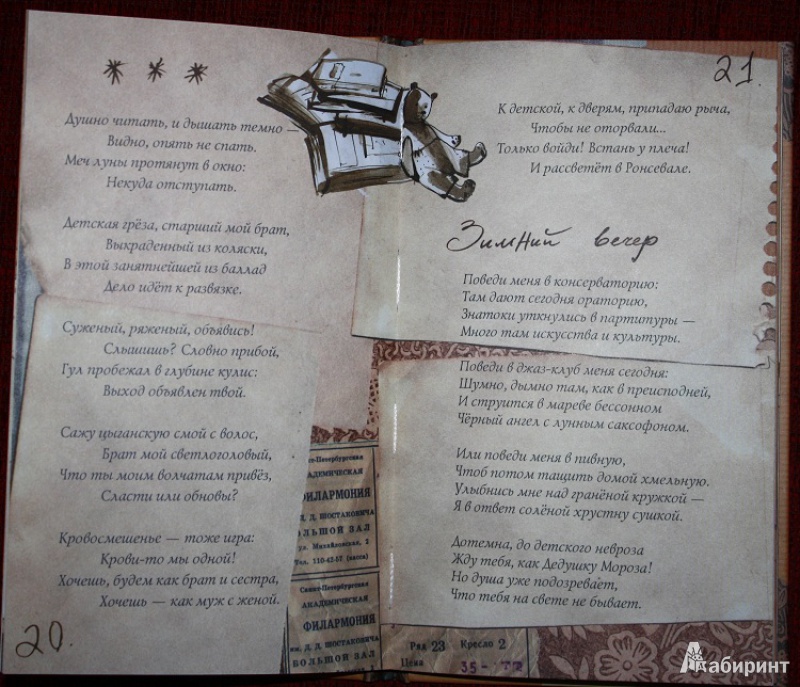 * * *
Душно читать, и дышать темно —
Видно, опять не спать.
Меч луны протянут в окно:
Некуда отступать.
Детская грёза, старший мой брат,
Выкраденный из коляски,
В этой занятнейшей из баллад
Дело идёт к развязке.
Суженый, ряженый, объявись!
Слышишь? Словно прибой,
Гул пробежал в глубине кулис:
Выход объявлен твой.
Сажу цыганскую смой с волос,
Брат мой светлоголовый,
Что ты моим волчатам привёз,
Сласти или обновы?
Кровосмешенье — тоже игра:
Крови-то мы одной!
Хочешь, будем как брат и сестра,
Хочешь — как муж с женой.
20.
Санкт-Петербургская
АКАДЕМИЧЕСКАЯ
ФИЛАРМОНИЯ
Д. Д. ШОСТАКОВИЧА
БОЛЬШОЙ ЗАЛ
ул. Михайловская, 2
Тел. 110-42-57 (касса)
Санкт-Петербургская
АКАДЕМИЧЕСКАЯ
ФИЛАРМОНИЯ
им. Д. Д. ШОСТАКОВИЧА
БОЛЬШОЙ ЗАЛ
21.
К детской, к дверям, припадаю рыча,
Чтобы не оторвали...
Только войди! Встань у плеча!
И рассветёт в Ронсевале.
Зимний вечер
Поведи меня в консерваторию:
Там дают сегодня ораторию,
Знатоки уткнулись в партитуры —
Много там искусства и культуры.
Поведи в джаз-клуб меня сегодня:
Шумно, дымно там, как в преисподней,
И струится в мареве бессонном
Чёрный ангел с лунным саксофоном.
Или поведи меня в пивную,
Чтоб потом тащить домой хмельную.
Улыбнись мне над гранёной кружкой —
Я в ответ солёной хрустну сушкой.
Дотемна, до детского невроза
Жду тебя, как Дедушку Мороза!
Но душа уже подозревает,
Что тебя на свете не бывает.
Ряд 23 Кресло 2
Цена 35-
Лабиринт